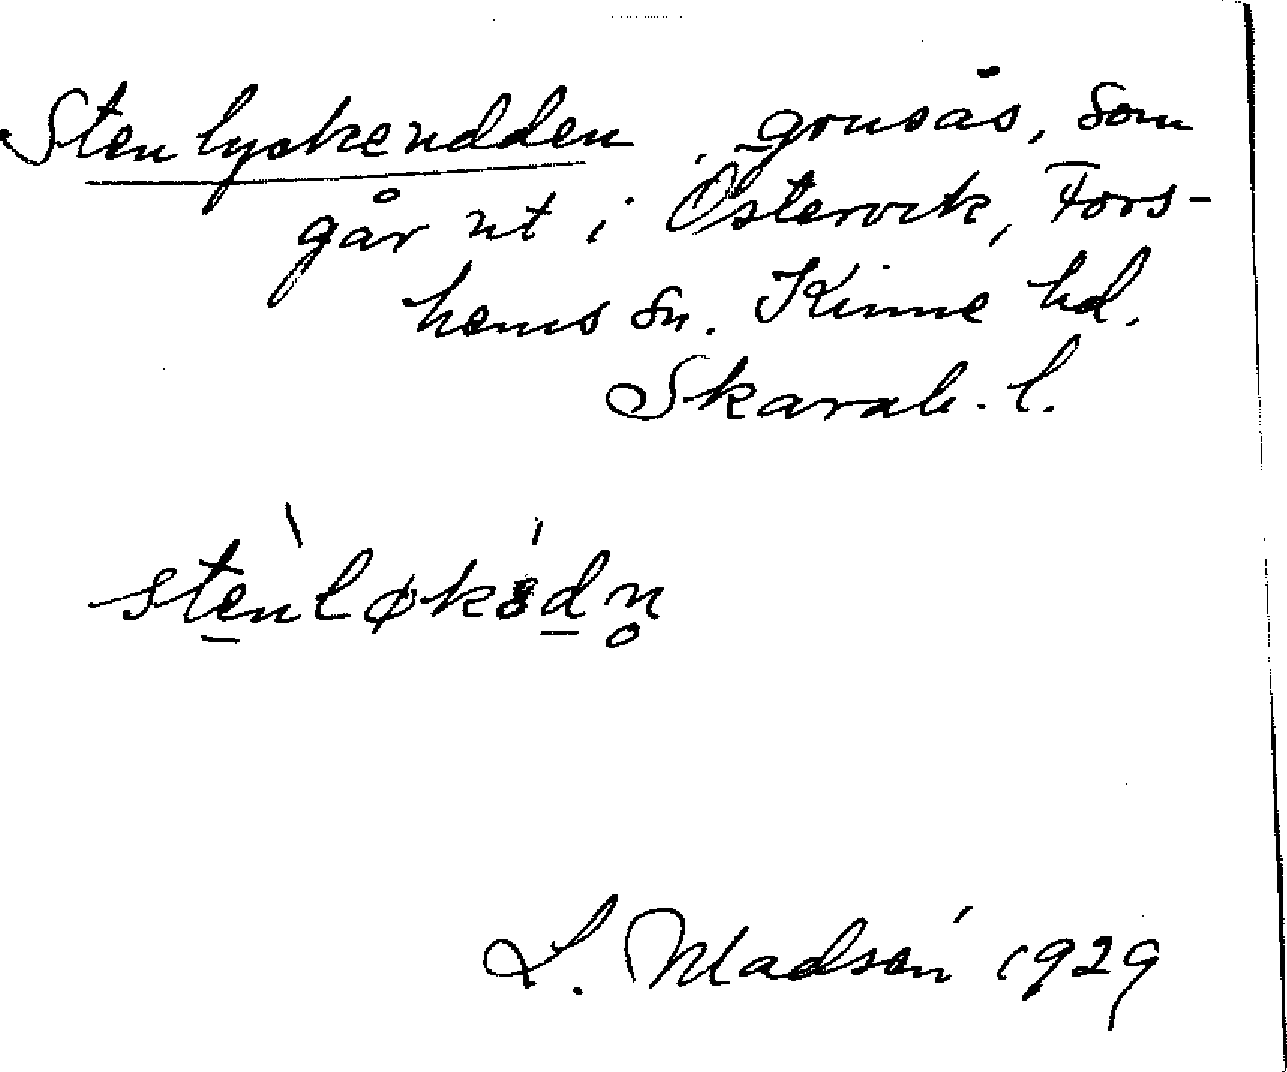 Stenlyckeudden, grusås, som
går ut i Östervik, Fors-
hems sn. Kinne hd.
Skarab. l.
L. Madsén 1929